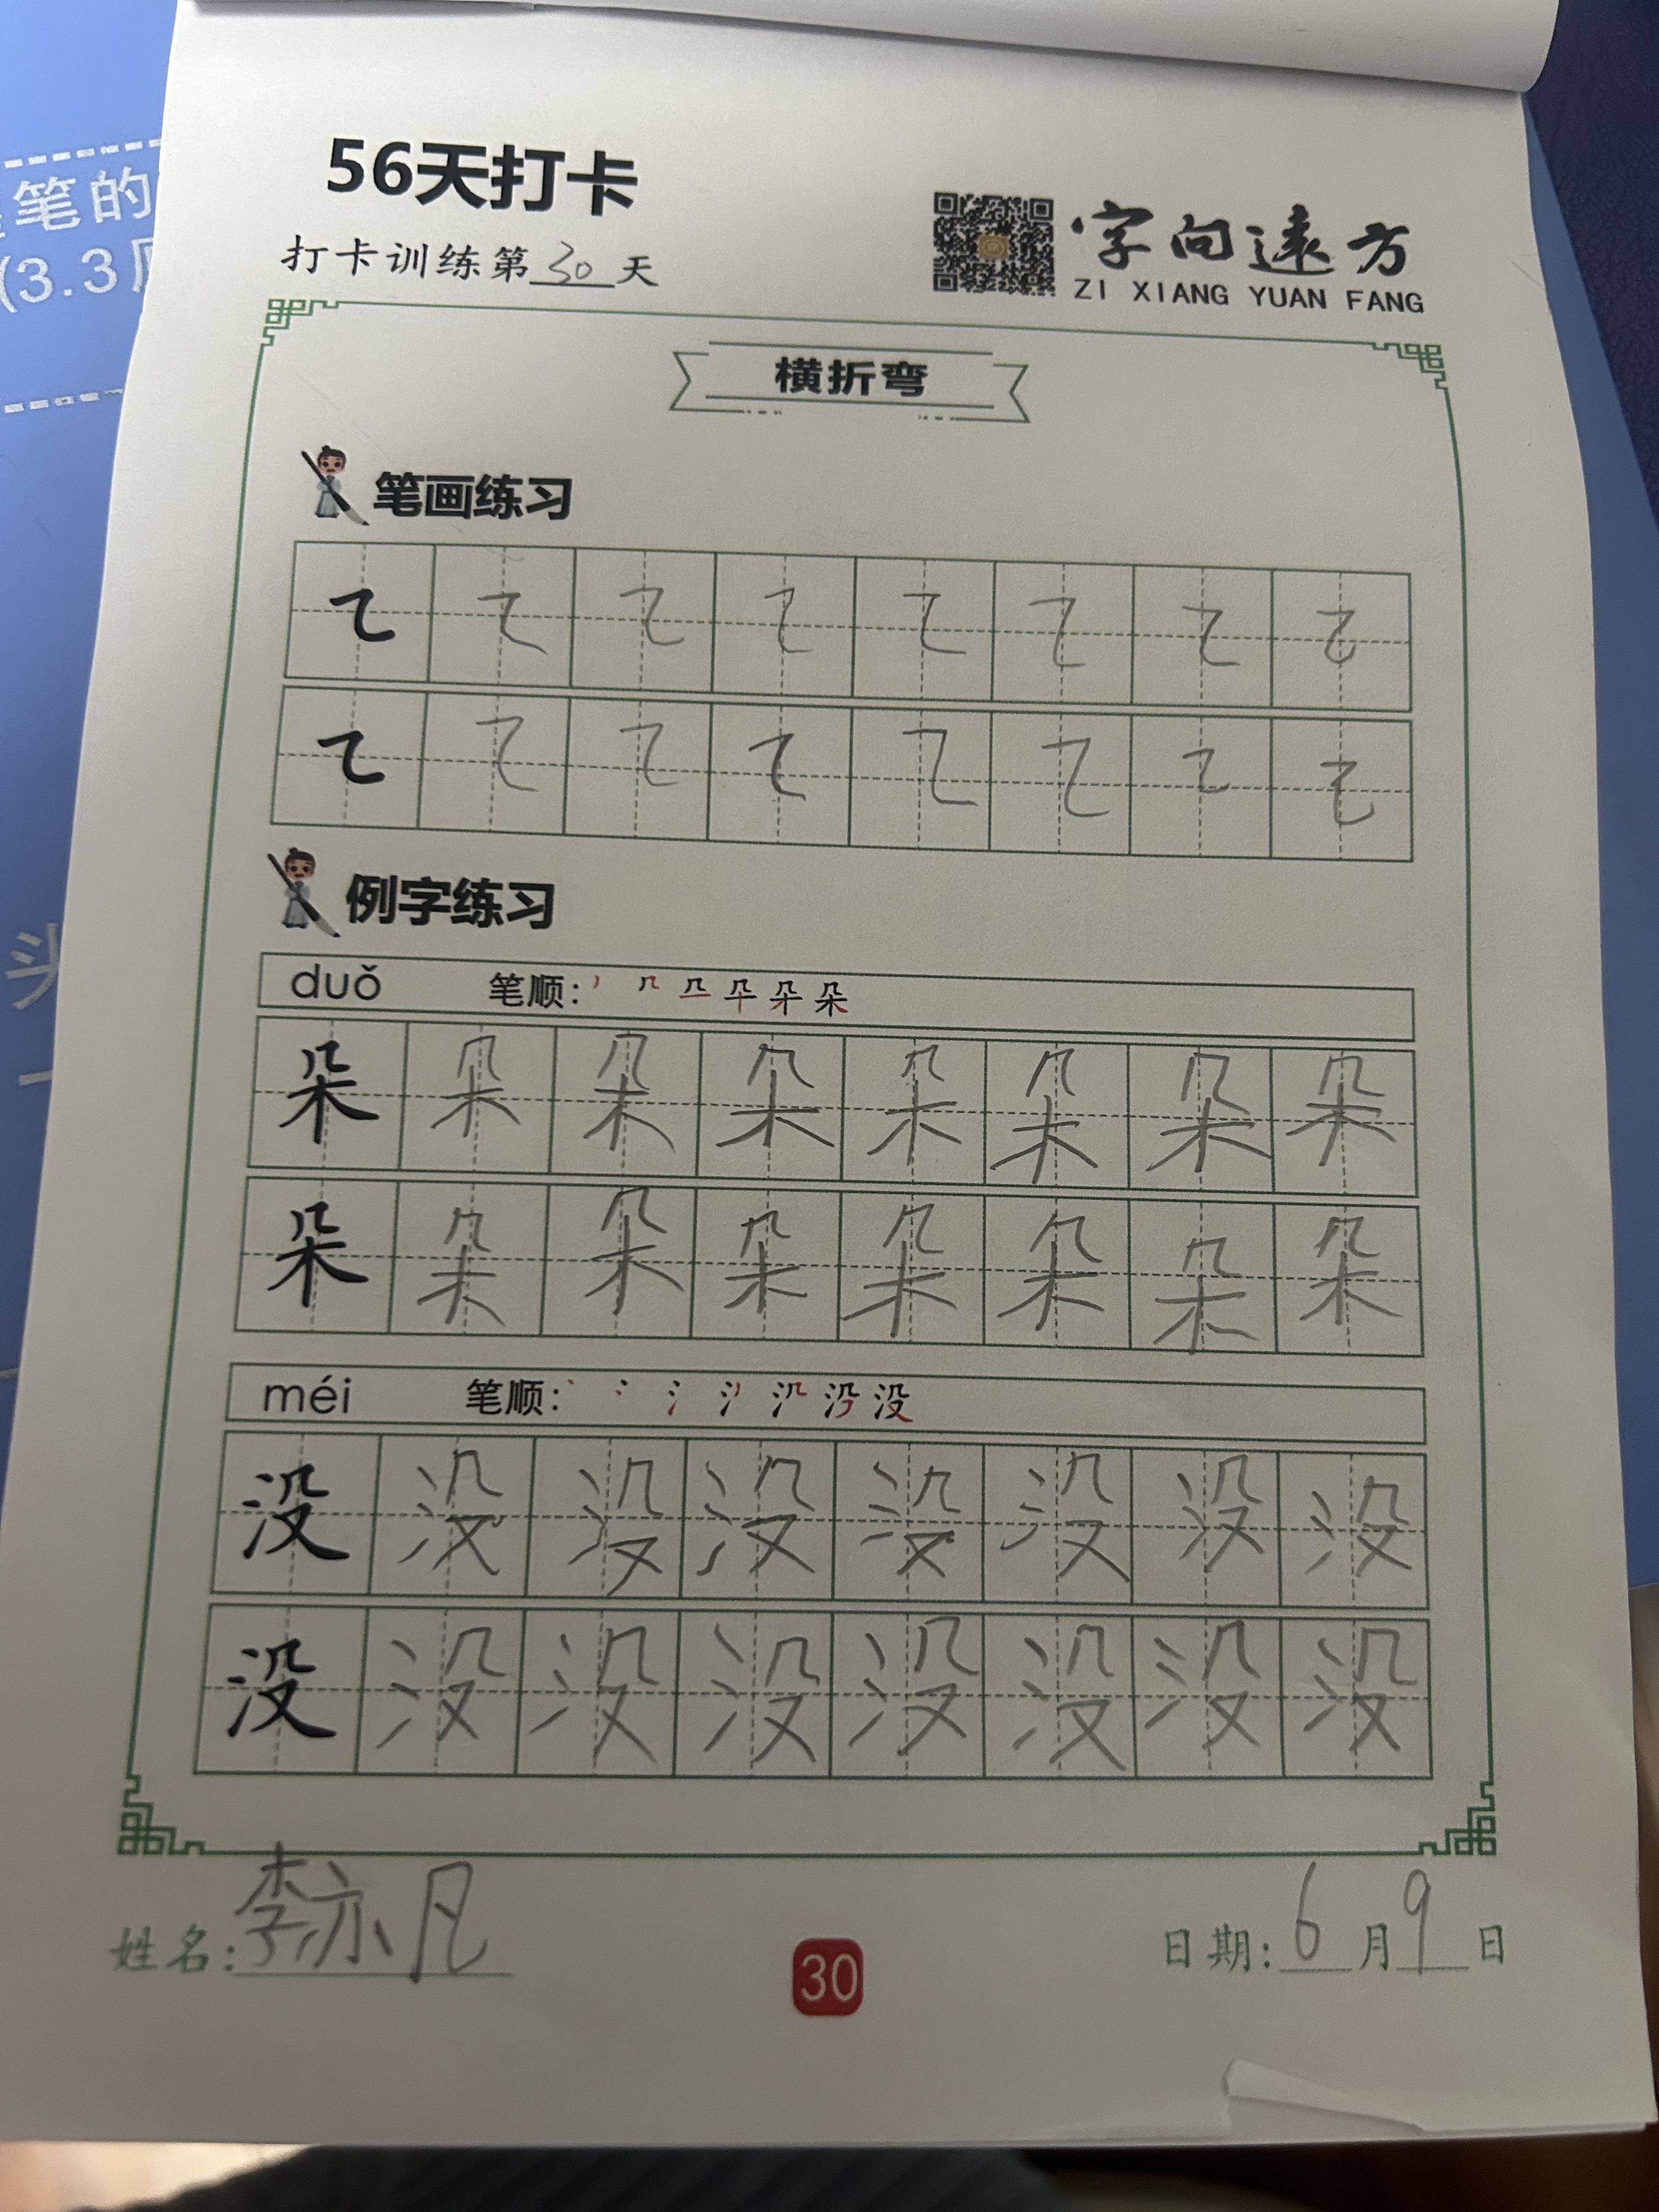 56天打卡
打卡训练第30天
字向遠方
ZI XIANG YUAN FANG
横折弯
笔画练习
例字练习
duǒ 笔顺：
朵 朵 朵 朵 朵 朵 朵 朵
朵 朵 朵 朵 朵 朵 朵 朵
méi 笔顺：
没 没 没 没 没 没 没 没
没 没 没 没 没 没 没 没
姓名：李亦凡
30
日期：6月9日
笔的
(3.3
头